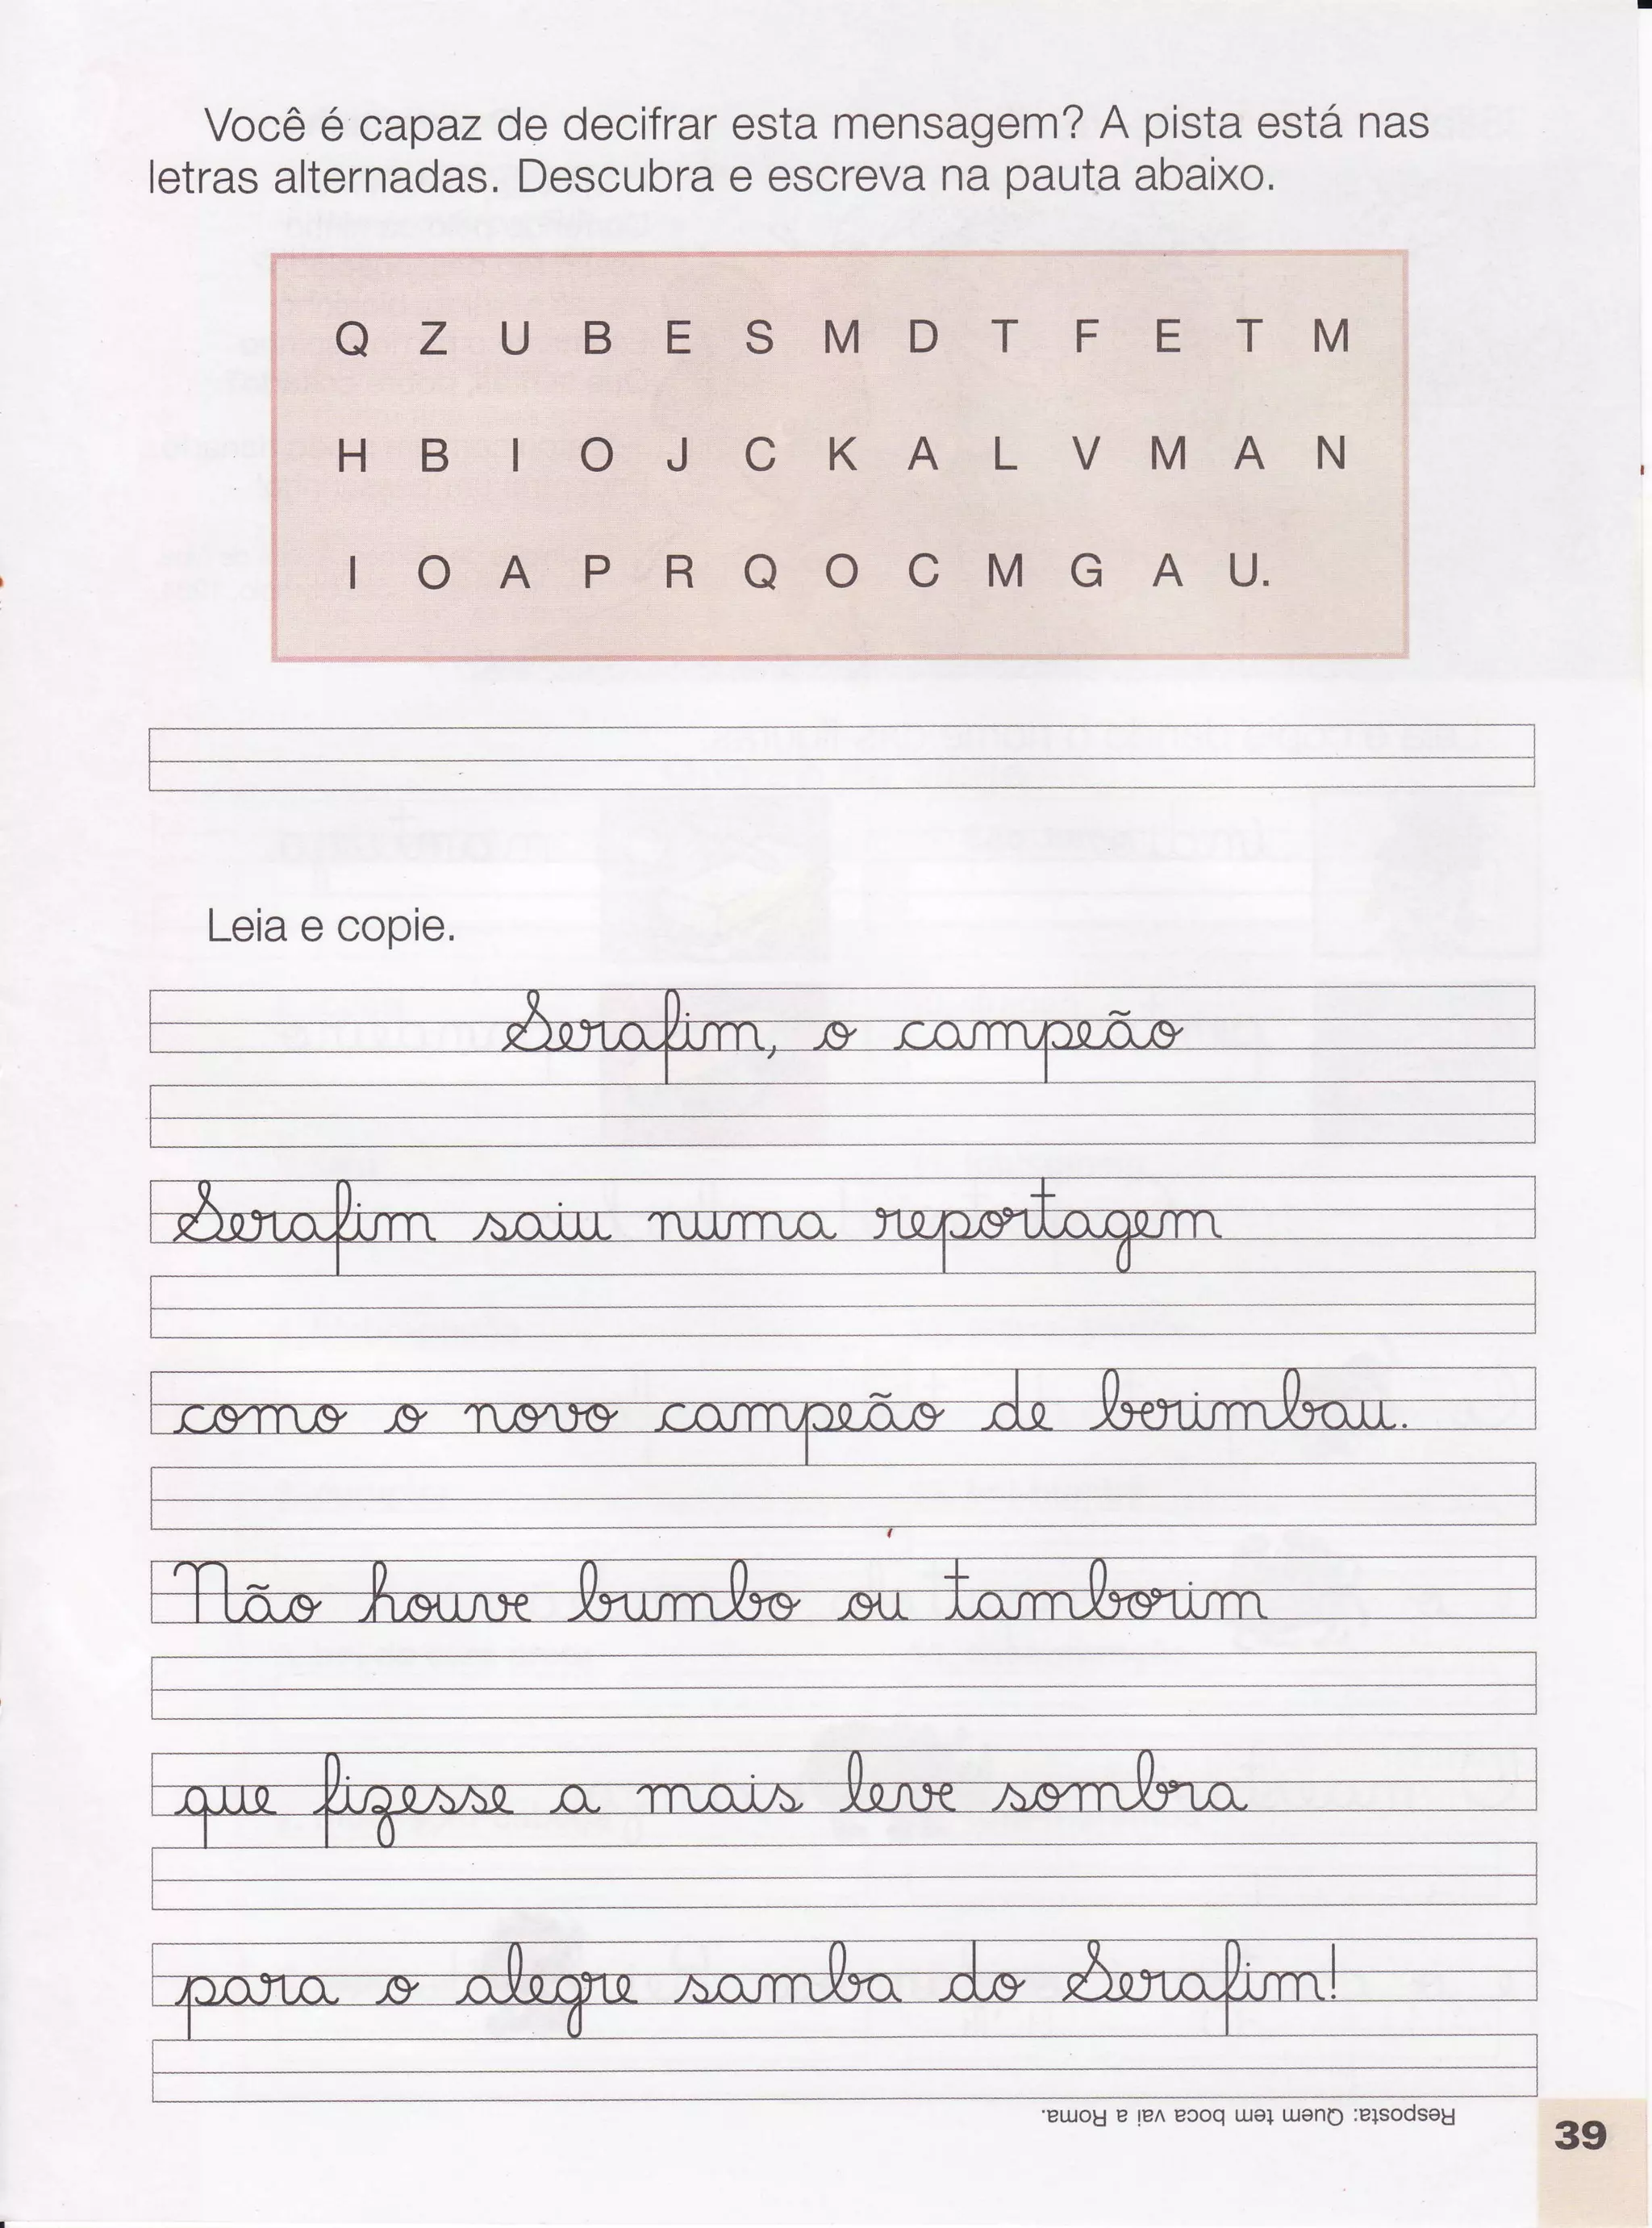 Você é capaz de decifrar esta mensagem? A pista está nas
letras alternadas. Descubra e escreva na pauta abaixo.
Q Z U B E S M D T F E T M
H B I O J C K A L V M A N
I O A P R Q O C M G A U.
Leia e copie.
Serafim, o campeão
Serafim saiu numa reportagem
como o novo campeão de berimbau.
Não houve bumbo ou tamborim
que fizesse a mais leve sombra
para o alegre samba do Serafim!
Resposta: Quem tem boca vai a Roma.
39